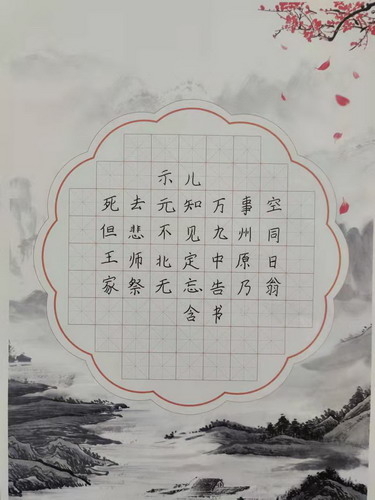 示儿
死去元知万事空
但悲不见九州同
王师北定中原日
家祭无忘告乃翁
含书